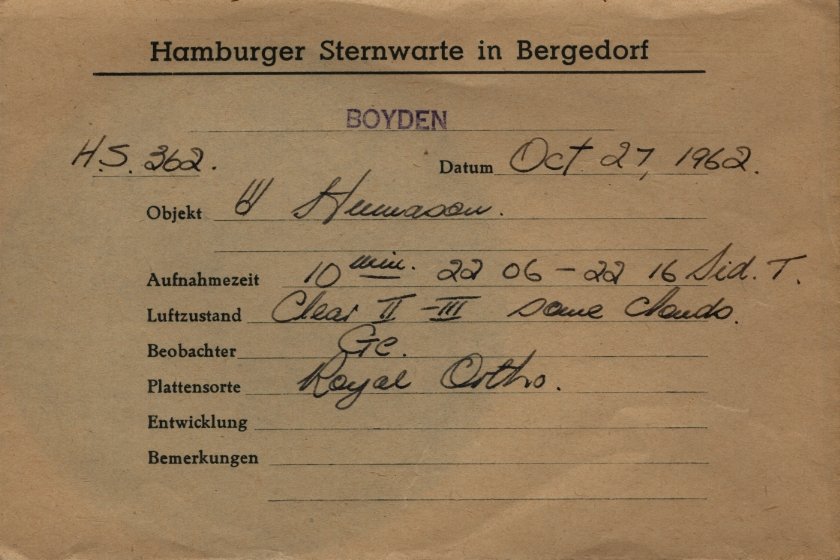 Hamburger Sternwarte in Bergedorf
BOYDEN
H.S. 362.
Datum Oct 27, 1962.
Objekt Humason.
Aufnahmezeit 10 min. 22 06 - 22 16 Sid. T.
Luftzustand Clear II - III some clouds.
Beobachter Ge.
Plattensorte Royal Ortho.
Entwicklung
Bemerkungen